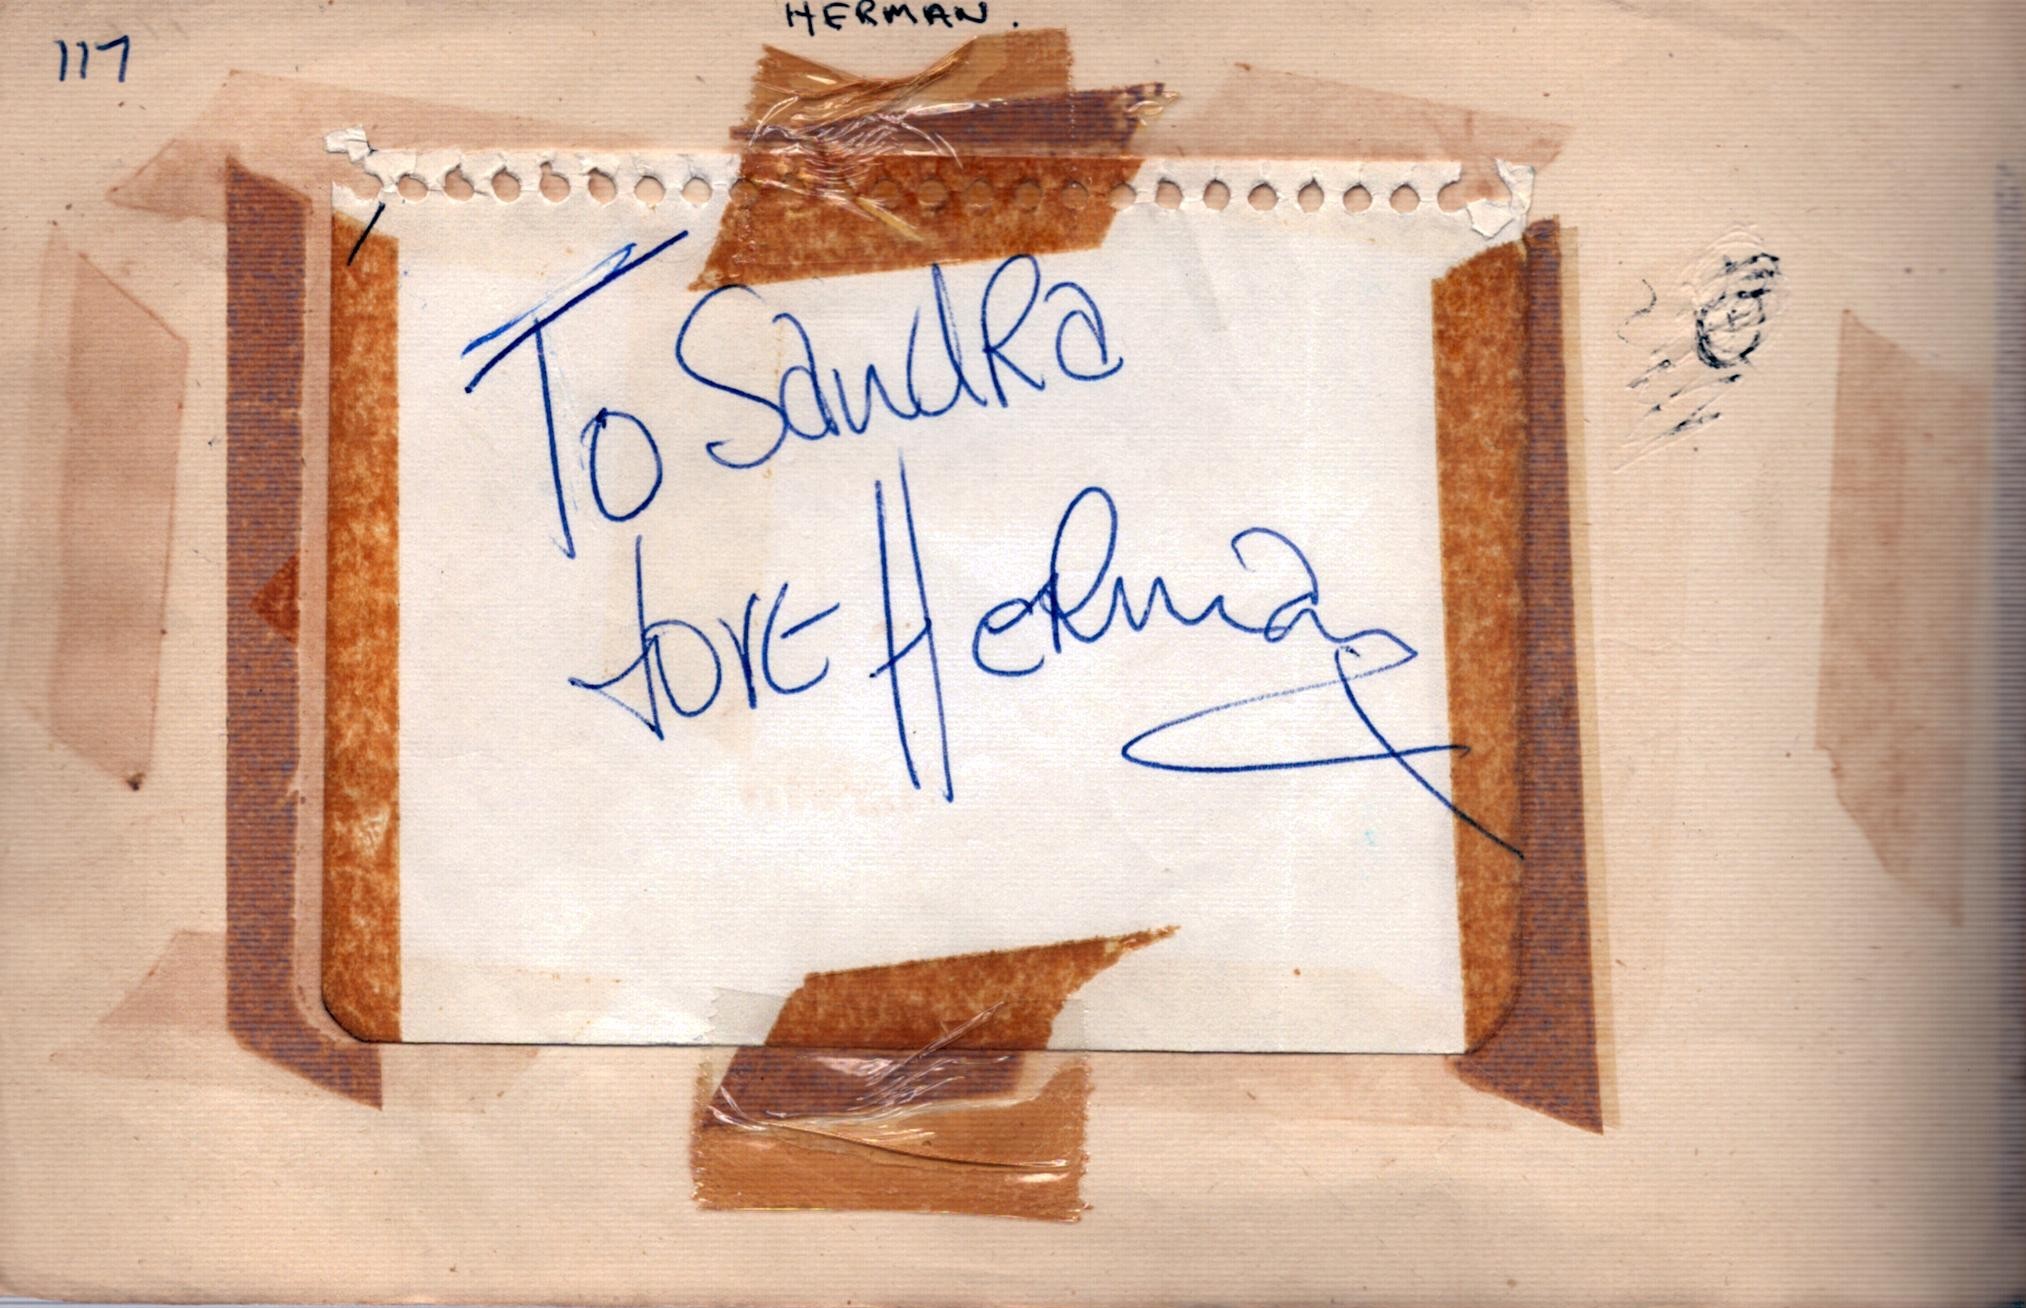 HERMAN.
117
To Sandra
love Herman